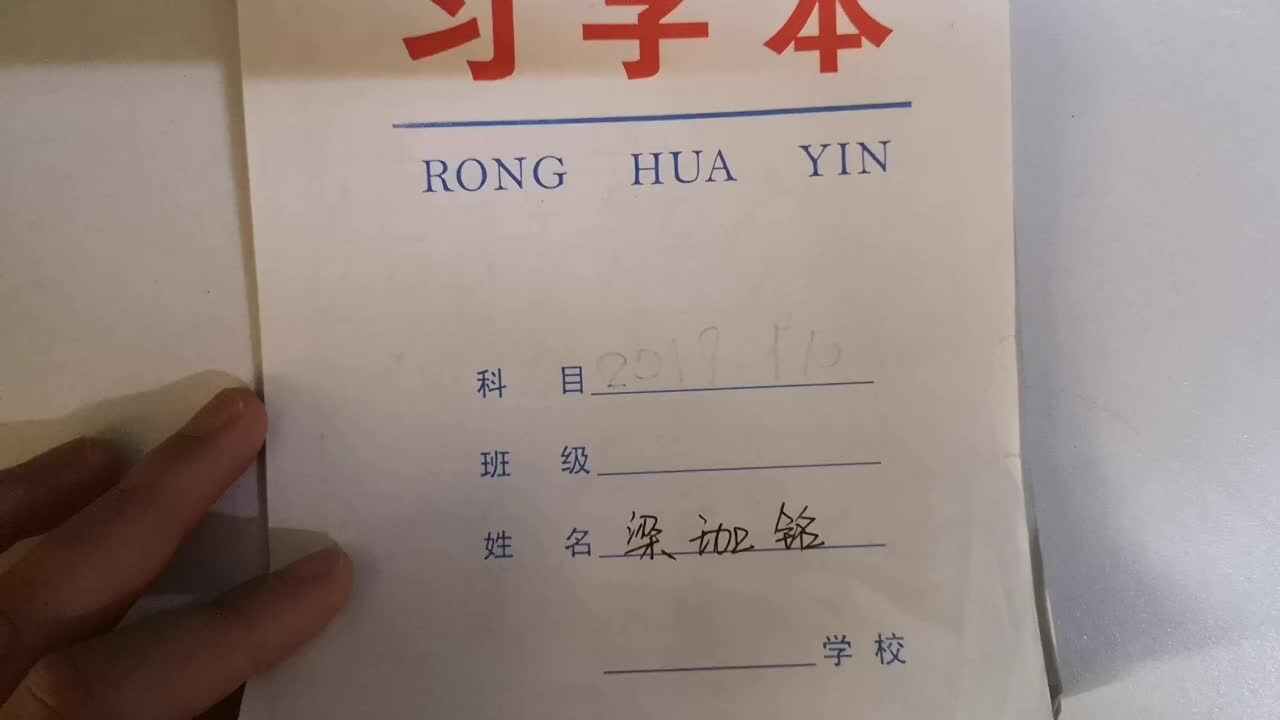 习字本
RONG HUA YIN
科 目 2019.
班 级
姓 名 梁珈铭
学 校